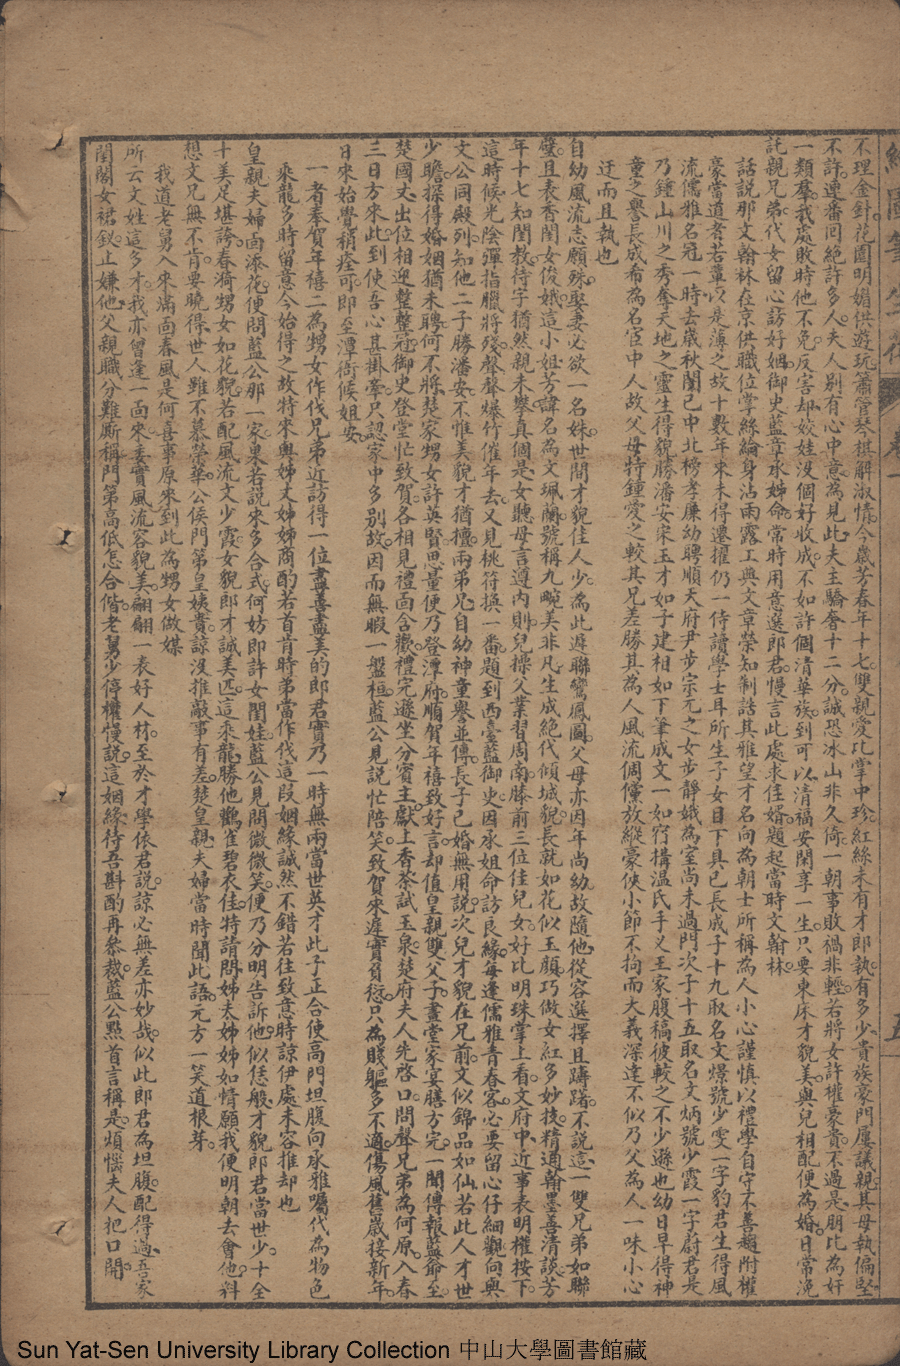 不理金針花園明媚供遊玩簫管琴棋解淑情今歲芳春年十七雙親愛比掌中珍紅絲未有才郎執有多少貴族豪門屢議親其母執偏堅
不許連番回絕許多人夫人別有心中意為見此夫主驕奢十二分誠恐冰山非久倚一朝事敗禍非輕若將女許權豪貴不過是朋比為奸
一類羣我處敗時他不免反害却姣娃沒個好收成不如許個清華族到可以清福安閑享一生只要東床才貌美與兒相配便為婚日常浼
託親兄弟代女留心訪好姻御史藍章承姊命常時用意選郎君慢言此處求佳婿題起當時文翰林
話說那文翰林在京供職位掌絲綸身沾雨露工典文章榮知制誥其雅望才名向為朝士所稱為人小心謹慎以禮學自守不善趨附權
豪當道者若輩以是薄之故十數年來未得遷擢仍一侍讀學士耳所生子女目下具已長成子十九取名文燝號少雯一字豹君生得風
流儒雅名冠一時去歲秋闈已中北榜孝廉幼聘順天府尹步宗元之女步靜娥為室尚未過門次子十五取名文炳號少霞一字蔚君是
乃鍾山川之秀奪天地之靈生得貌勝潘安宋玉才如子建相如下筆成文一如宿搆溫氏手义王家腹稿彼較之不少遜也幼日早得神
童之譽長成希為名宦中人故父母特鍾愛之較其兄差勝其為人風流倜儻放縱豪俠小節不拘而大義深達不似乃父為人一味小心
迂而且執也
自幼風流志願殊娶妻必欲一名姝世間才貌佳人少為此遲聯鸞鳳圖父母亦因年尚幼故隨他從容選擇且躊躇不說這一雙兄弟如聯
璧且表香閨女俊娥這小姐芳諱名為文珮蘭號稱九畹美非凡生成絕代傾城貌長就如花似玉顏巧做女紅多妙技精通翰墨善清談芳
年十七知閨教待字猶然親未攀真個是女聽母言遵內則兒操父業習周南膝前三位佳兒女好比明珠掌上看文府中近事表明權按下
這時候光陰彈指臘將殘聲聲爆竹催年去又見桃符換一番題到西臺藍御史因承姐命訪良緣每逢儒雅青春客必要留心仔細觀向與
文公同殿列知他二子勝潘安不惟美貌才猶擅兩弟兄自幼神童譽並傳長子已婚無用說次兒才貌在兄前文似錦品如仙若此人才世
少瞻探得婚姻猶未聘何不將楚家甥女許英賢思量便乃登潭府順賀年禧致好言却值皇親雙父子畫堂家宴膳方完一聞傳報藍爺至
楚國丈出位相迎整整冠御史登堂忙致賀各相見禮面含歡禮完遜坐分賓主獻上香茶試玉泉楚府夫人先啓口問聲兄弟為何原入春
三日方來此到使吾心甚掛牽只認家中多別故因而無暇一盤桓藍公見說忙陪笑致賀來遲實負愆只為賤軀多不適傷風舊歲接新年
日來始覺稍痊可即至潭衙候姐安
一者奉賀年禧二為甥女作伐兄弟近訪得一位盡善盡美的郎君實乃一時無兩當世英才此子正合使高門坦腹向承雅囑代為物色
乘龍多時留意今始得之故特來與姊丈姊姊商酌若首肯時弟當作伐這段姻緣誠然不錯若往致意時諒伊處未容推却也
皇親夫婦面添花便問藍公那一家果若說來多合式何妨即許女閨娃藍公見問微微笑便乃分明告訴他似恁般才貌郎君當世少十全
十美足堪誇春漪甥女如花貌若配風流文少霞女貌郎才誠美匹這乘龍勝他鸛雀碧衣佳特請問姊太姊姊如情願我便明朝去會他料
想文兄無不肯要曉得世人雖不慕榮華公侯門第皇姨貴諒沒推敲事有差楚皇親夫婦當時聞此語元方一笑道根芽
我道老舅入來滿面春風是何喜事原來到此為甥女做媒
所云文姓這多才我亦曾逢一面來委實風流容貌美翩翩一表好人材至於才學依君說諒必無差亦妙哉似此郎君為坦腹配得過吾家
閨閣女裙釵止嫌他父親職分難廝稱門第高低怎合偕老舅少停權慢說這姻緣待吾斟酌再叅裁藍公點首言稱是煩惱夫人把口開
Sun Yat-Sen University Library Collection 中山大學圖書館藏